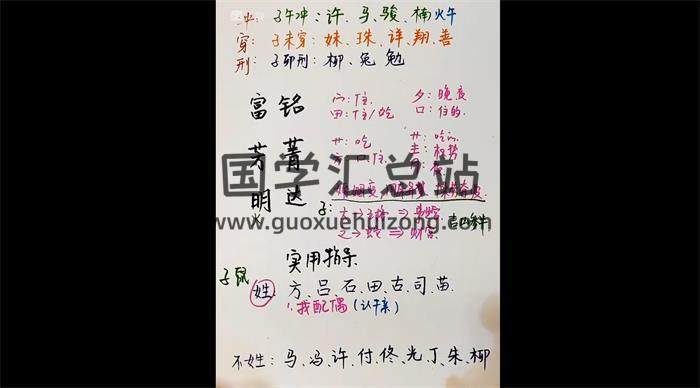 冲：子午冲：许、马、骏、楠 火午
穿：子未穿：妹、珠、详、翔、善
刑：子卯刑：柳、兔、勉
富 铭
宀：住、
田：住/吃
夕：晚夜
口：住的、
芳 菁
艹：吃
艹：吃
明 达
国学汇总站
www.guoxuehuizong.com
子：
实用指导
子鼠
姓：方、吕、石、田、古、司、苗、
1、找配偶（认干亲）
不姓：马、冯、许、付、佟、光、丁、朱、柳